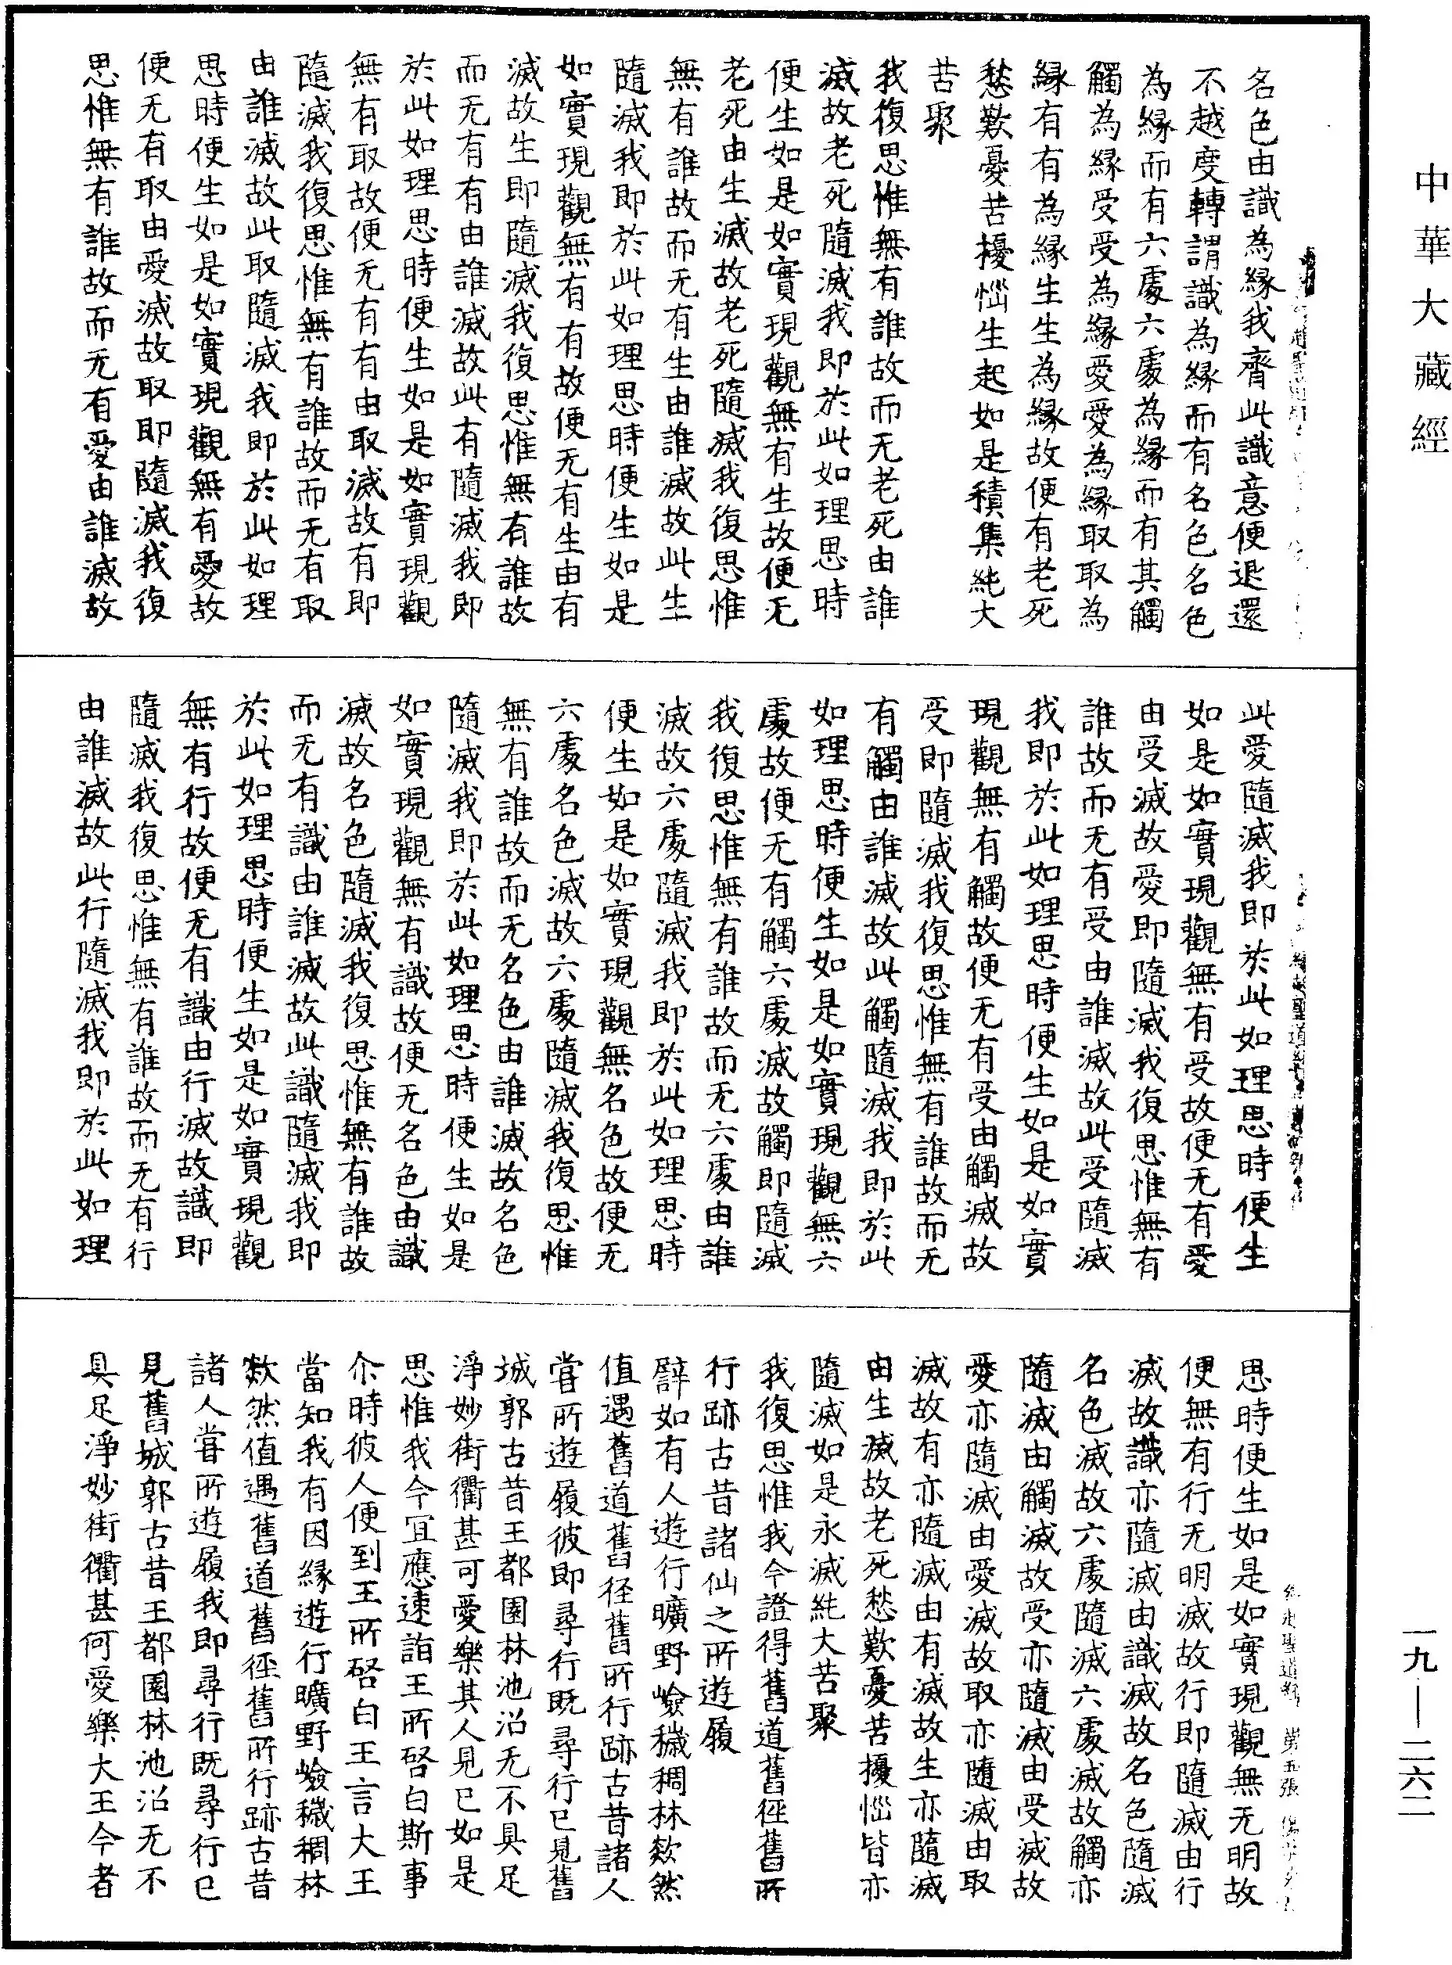 中華大藏經
名色由識為緣我齊此識意便退還
不越度轉謂識為緣而有名色名色
為緣而有六處六處為緣而有其觸
觸為緣受受為緣愛愛為緣取取為
緣有有為緣生生為緣故便有老死
愁歎憂苦擾惱生起如是積集純大
苦聚
我復思惟無有誰故而无老死由誰
滅故老死隨滅我即於此如理思時
便生如是如實現觀無有生故便无
老死由生滅故老死隨滅我復思惟
無有誰故而无有生由誰滅故此生
隨滅我即於此如理思時便生如是
如實現觀無有有故便无有生由有
滅故生即隨滅我復思惟無有誰故
而无有有由誰滅故此有隨滅我即
於此如理思時便生如是如實現觀
無有取故便无有有由取滅故有即
隨滅我復思惟無有誰故而无有取
由誰滅故此取隨滅我即於此如理
思時便生如是如實現觀無有愛故
便无有取由愛滅故取即隨滅我復
思惟無有誰故而无有愛由誰滅故
此愛隨滅我即於此如理思時便生
如是如實現觀無有受故便无有愛
由受滅故愛即隨滅我復思惟無有
誰故而无有受由誰滅故此受隨滅
我即於此如理思時便生如是如實
現觀無有觸故便无有受由觸滅故
受即隨滅我復思惟無有誰故而无
有觸由誰滅故此觸隨滅我即於此
如理思時便生如是如實現觀無六
處故便无有觸六處滅故觸即隨滅
我復思惟無有誰故而无六處由誰
滅故六處隨滅我即於此如理思時
便生如是如實現觀無名色故便无
六處名色滅故六處隨滅我復思惟
無有誰故而无名色由誰滅故名色
隨滅我即於此如理思時便生如是
如實現觀無有識故便无名色由識
滅故名色隨滅我復思惟無有誰故
而无有識由誰滅故此識隨滅我即
於此如理思時便生如是如實現觀
無有行故便无有識由行滅故識即
隨滅我復思惟無有誰故而无有行
由誰滅故此行隨滅我即於此如理
思時便生如是如實現觀無无明故
便無有行无明滅故行即隨滅由行
滅故識亦隨滅由識滅故名色隨滅
名色滅故六處隨滅六處滅故觸亦
隨滅由觸滅故受亦隨滅由受滅故
愛亦隨滅由愛滅故取亦隨滅由取
滅故有亦隨滅由有滅故生亦隨滅
由生滅故老死愁歎憂苦擾惱皆亦
隨滅如是永滅純大苦聚
我復思惟我今證得舊道舊徑舊所
行跡古昔諸仙之所遊履
辟如有人遊行曠野嶮穢稠林欻然
值遇舊道舊徑舊所行跡古昔諸人
嘗所遊履彼即尋行既尋行已見舊
城郭古昔王都園林池沼无不具足
淨妙街衢甚可愛樂其人見已如是
思惟我今冝應速詣王所啓白斯事
尒時彼人便到王所啓白王言大王
當知我有因緣遊行曠野嶮穢稠林
欻然值遇舊道舊徑舊所行跡古昔
諸人嘗所遊履我即尋行既尋行已
見舊城郭古昔王都園林池沼无不
具足淨妙街衢甚何愛樂大王今者
一九—二六二